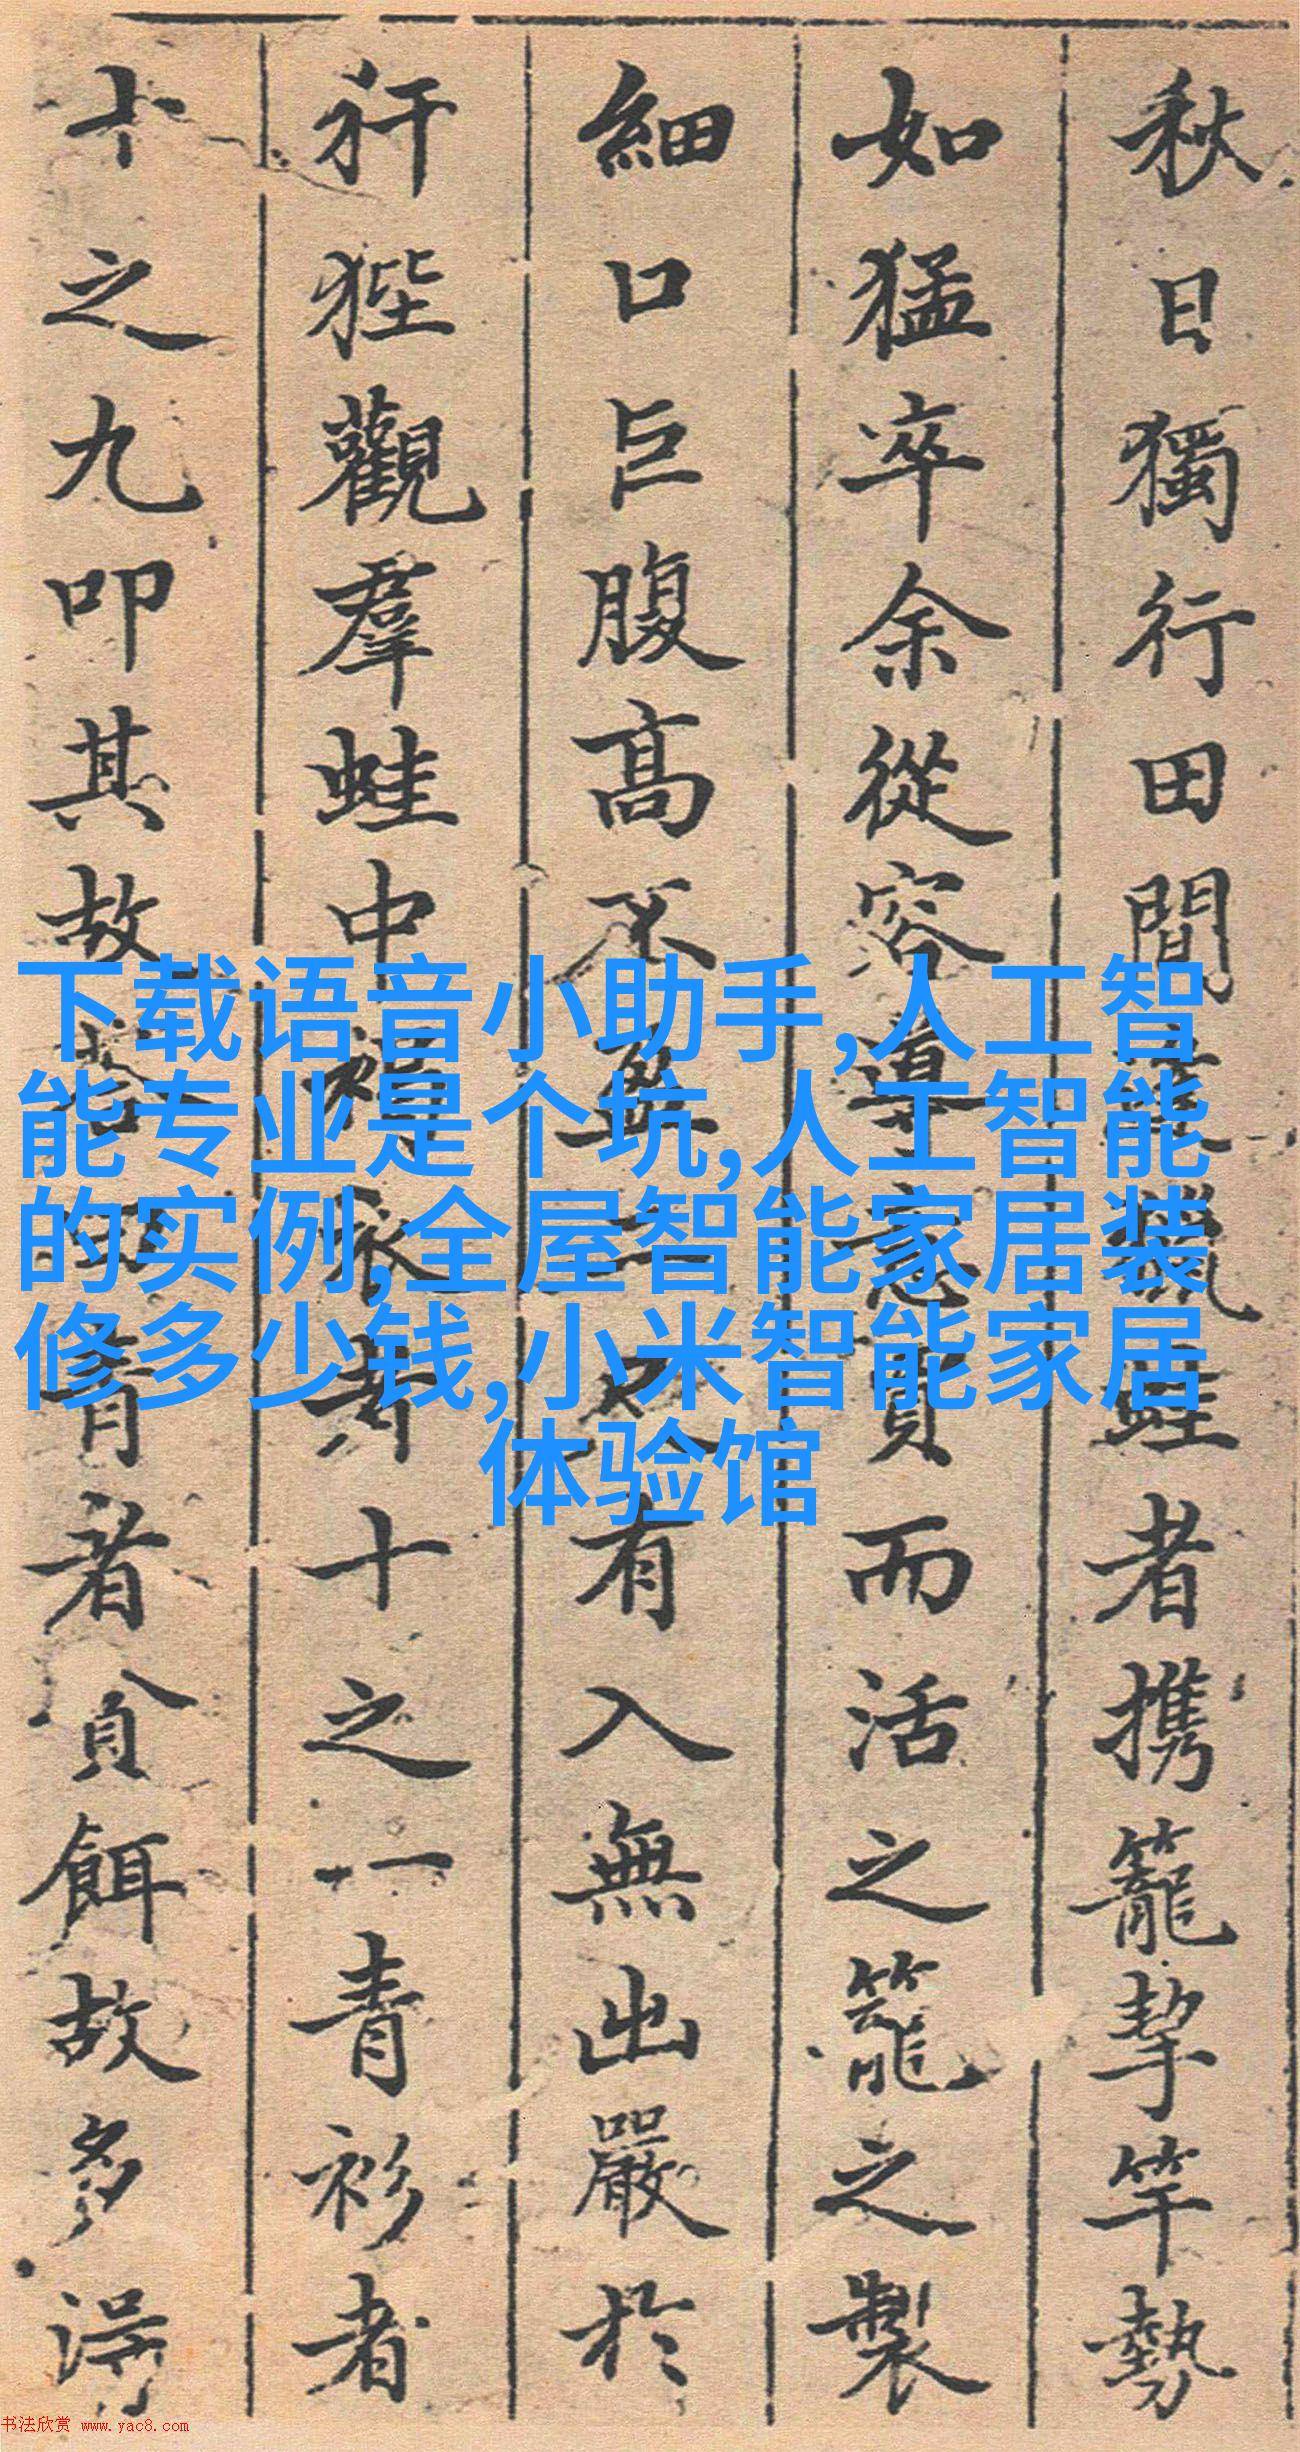 秋日獨行田間獵蛙者携籠挈竿勢
如猛卒余從容導意買而活之籠之製
細口巨腹高不盈二尺有入無出嚴於
犴狴觀羣蛙中緑衣者十之一青衫者
十之九叩其故答曰青者貪餌故多得
下载语音小助手,人工智
能专业是个坑,人工智能
的实例,全屋智能家居装
修多少钱,小米智能家居
体验馆
书法欣赏 www.yac8.com